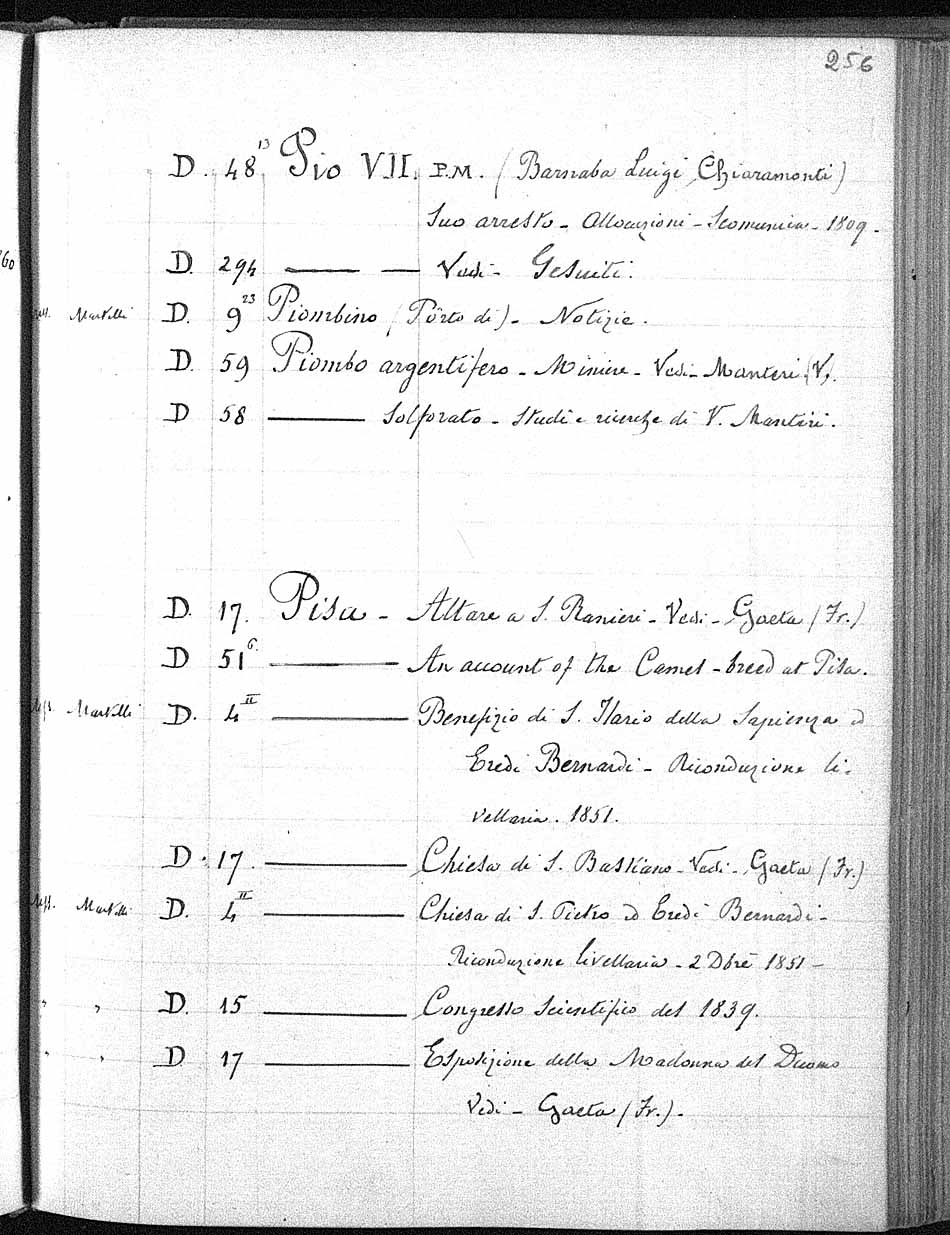 256
D. 48 13 Pio VII. P.M. (Barnaba Luigi Chiaramonti)
Suo arresto - Allocuzioni - Scomunica - 1809.
260
D. 294 — — Vedi - Gesuiti.
Martelli D. 9 23 Piombino (Porto di) - Notizie.
D. 59 Piombo argentifero - Miniere - Vedi - Manteri (V).
D 58 — Solforato - Studi e ricerche di V. Manteri.
D. 17. Pisa - Altare a S. Ranieri - Vedi - Gaeta (Fr.)
D 51 6. — An account of the Camel - breed at Pisa.
Martelli D. 4 II — Benefizio di S. Ilario della Sapienza ed
Eredi Bernardi - Riconduzione li-
vellaria. 1851.
D. 17. — Chiesa di S. Bastiano - Vedi - Gaeta (Fr.)
Martelli D. 4 II — Chiesa di S. Pietro ed Eredi Bernardi -
Riconduzione livellaria - 2 Dbre 1851 -
" " D. 15 — Congresso Scientifico del 1839.
" " D 17 — Esposizione della Madonna del Duomo
Vedi - Gaeta (Fr.) -